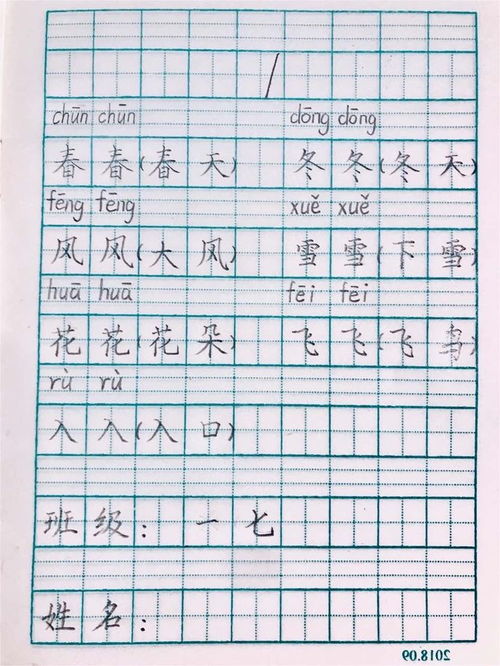 /
chūn chūn dōng dōng
春 春(春 天) 冬 冬(冬 天)
fēng fēng xuě xuě
风 风(大 风) 雪 雪(下 雪)
huā huā fēi fēi
花 花(花 朵) 飞 飞(飞 鸟)
rù rù
入 入(入 口)
班 级: 一 七
姓 名:
2018.09